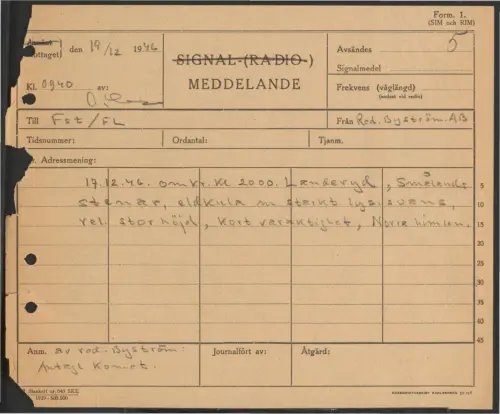 Form. 1.
(SIM och RIM)
Avsänt
Mottaget } den 19/12 1946
SIGNAL-(RADIO-)
MEDDELANDE
Avsändes 5
Signalmedel
Kl. 0940 av:
Frekvens (våglängd)
(endast vid radio)
Till Fst/FL
Från Red. Byström. AB
Tidsnummer:
Ordantal:
Tjanm.
Adressmening:
17.12.46. omkr. Kl 2000. Landeryd, Smålands
5
stenar, eldkula m starkt lys. svans,
10
rel. stor höjd, kort varaktighet, Norra himlen.
15
20
25
30
35
40
45
Anm. av red. Byström:
Antagl Komet.
Journalfört av:
Åtgärd: